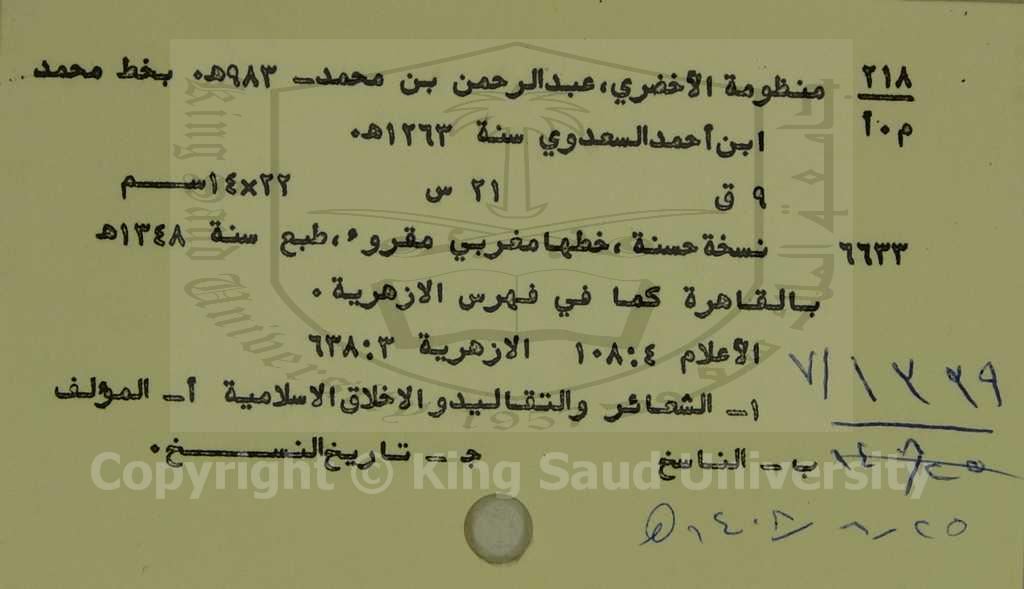 ٢١٨ منظومة الأخضري، عبدالرحمن بن محمد ـ ٩٨٣هـ. بخط محمد
م.أ ابن أحمدالسعدوي سنة ١٢٦٣هـ.
٩ ق ٢١ س ٢٢×١٤ســم
٦٦٣٣ نسخة حسنة ،خطها مغربي مقروء ،طبع سنة ١٣٤٨هـ
بالقاهرة كما في فهرس الازهرية .
الأعلام ٤:١٠٨ الازهرية ٣:٦٣٨
١ـ الشعائر والتقاليدو الاخلاق الاسلامية أ ـ المؤلف
ب ـ الناسخ جـ ـ تاريخ النســـخ.
٧/١٣٣٩
٢٥/٨/١٤٠٨هـ
Copyright © King Saud University
King Saud University
1957